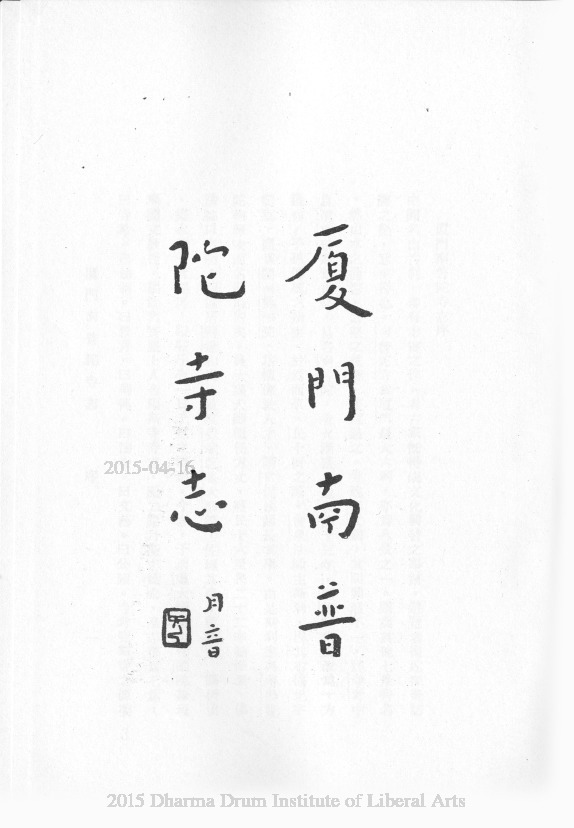 厦門南普
陀寺志
月音
2015-04-16
2015 Dharma Drum Institute of Liberal Arts